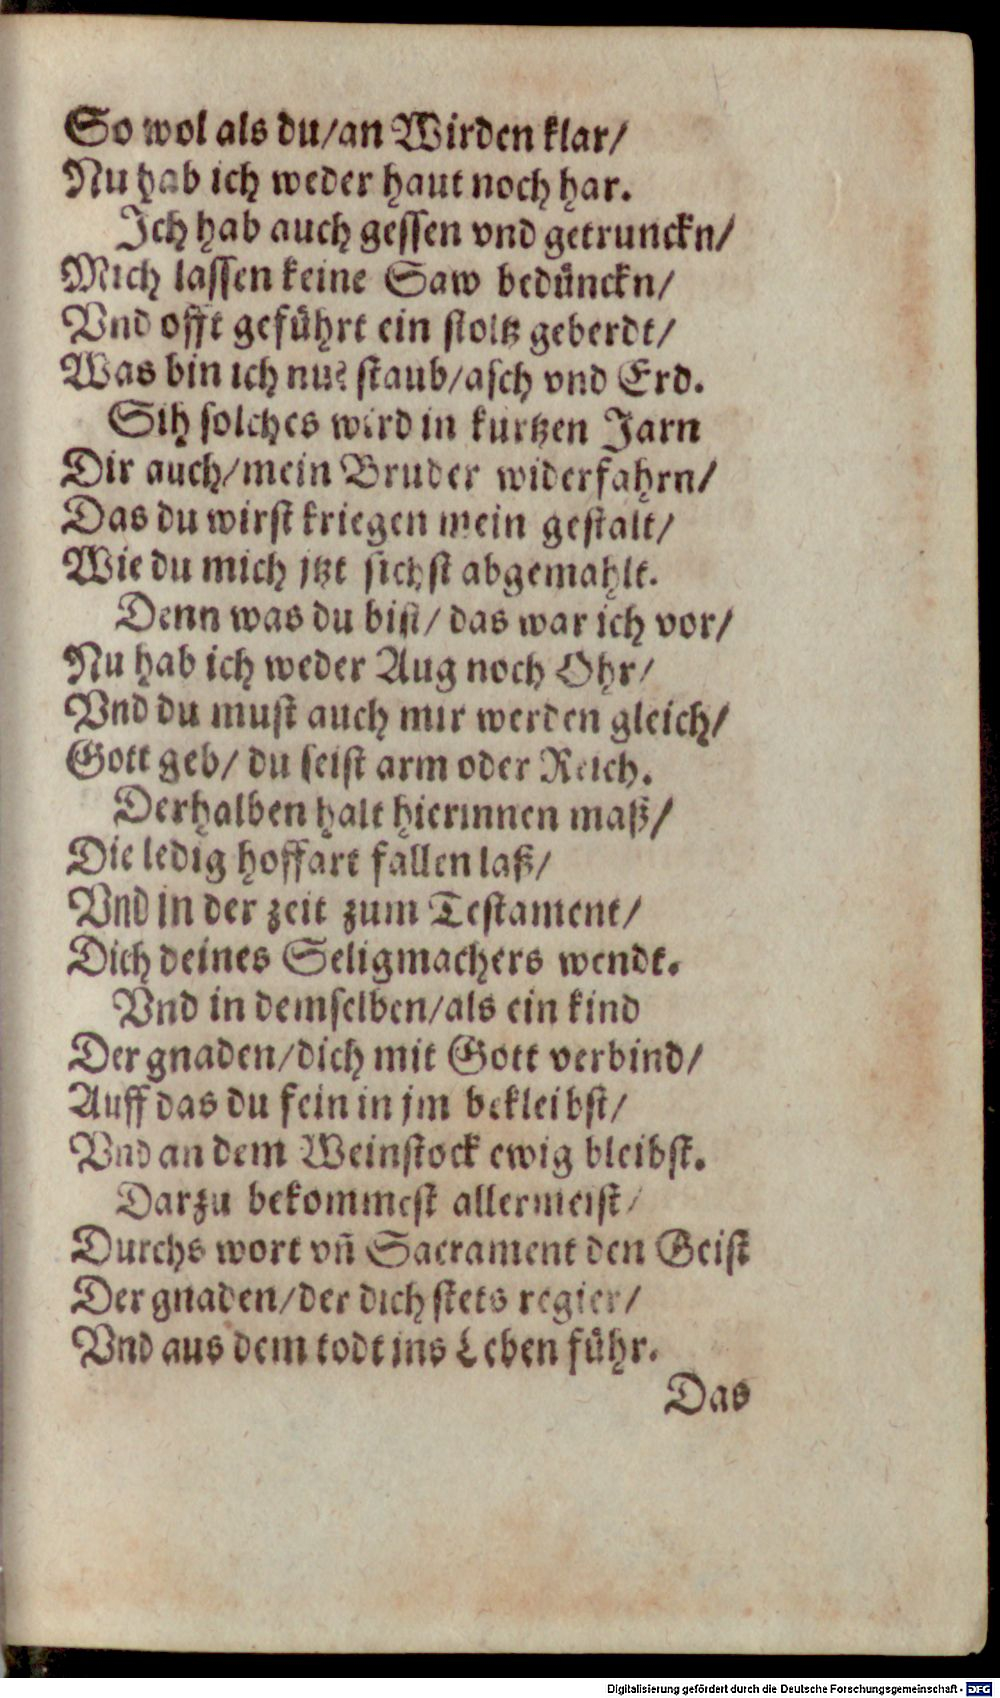 So wol als du/an Wirden klar/
Nu hab ich weder haut noch har.
Ich hab auch gessen vnd getrunckn/
Mich lassen keine Saw bedünckn/
Vnd offt geführt ein stoltz geberdt/
Was bin ich nu? staub/asch vnd Erd.
Sih solches wird in kurtzen Jarn
Dir auch/mein Bruder widerfahrn/
Das du wirst kriegen mein gestalt/
Wie du mich jtzt sichst abgemahlt.
Denn was du bist/ das war ich vor/
Nu hab ich weder Aug noch Ohr/
Vnd du must auch mir werden gleich/
Gott geb/ du seist arm oder Reich.
Derhalben halt hierinnen maß/
Die ledig hoffart fallen laß/
Vnd in der zeit zum Testament/
Dich deines Seligmachers wendt.
Vnd in demselben/als ein kind
Der gnaden/dich mit Gott verbind/
Auff das du fein in jm bekleibst/
Vnd an dem Weinstock ewig bleibst.
Darzu bekommest allermeist/
Durchs wort vn̄ Sacrament den Geist
Der gnaden/der dich stets regier/
Vnd aus dem todt ins Leben führ.
Das
Digitalisierung gefördert durch die Deutsche Forschungsgemeinschaft - DFG